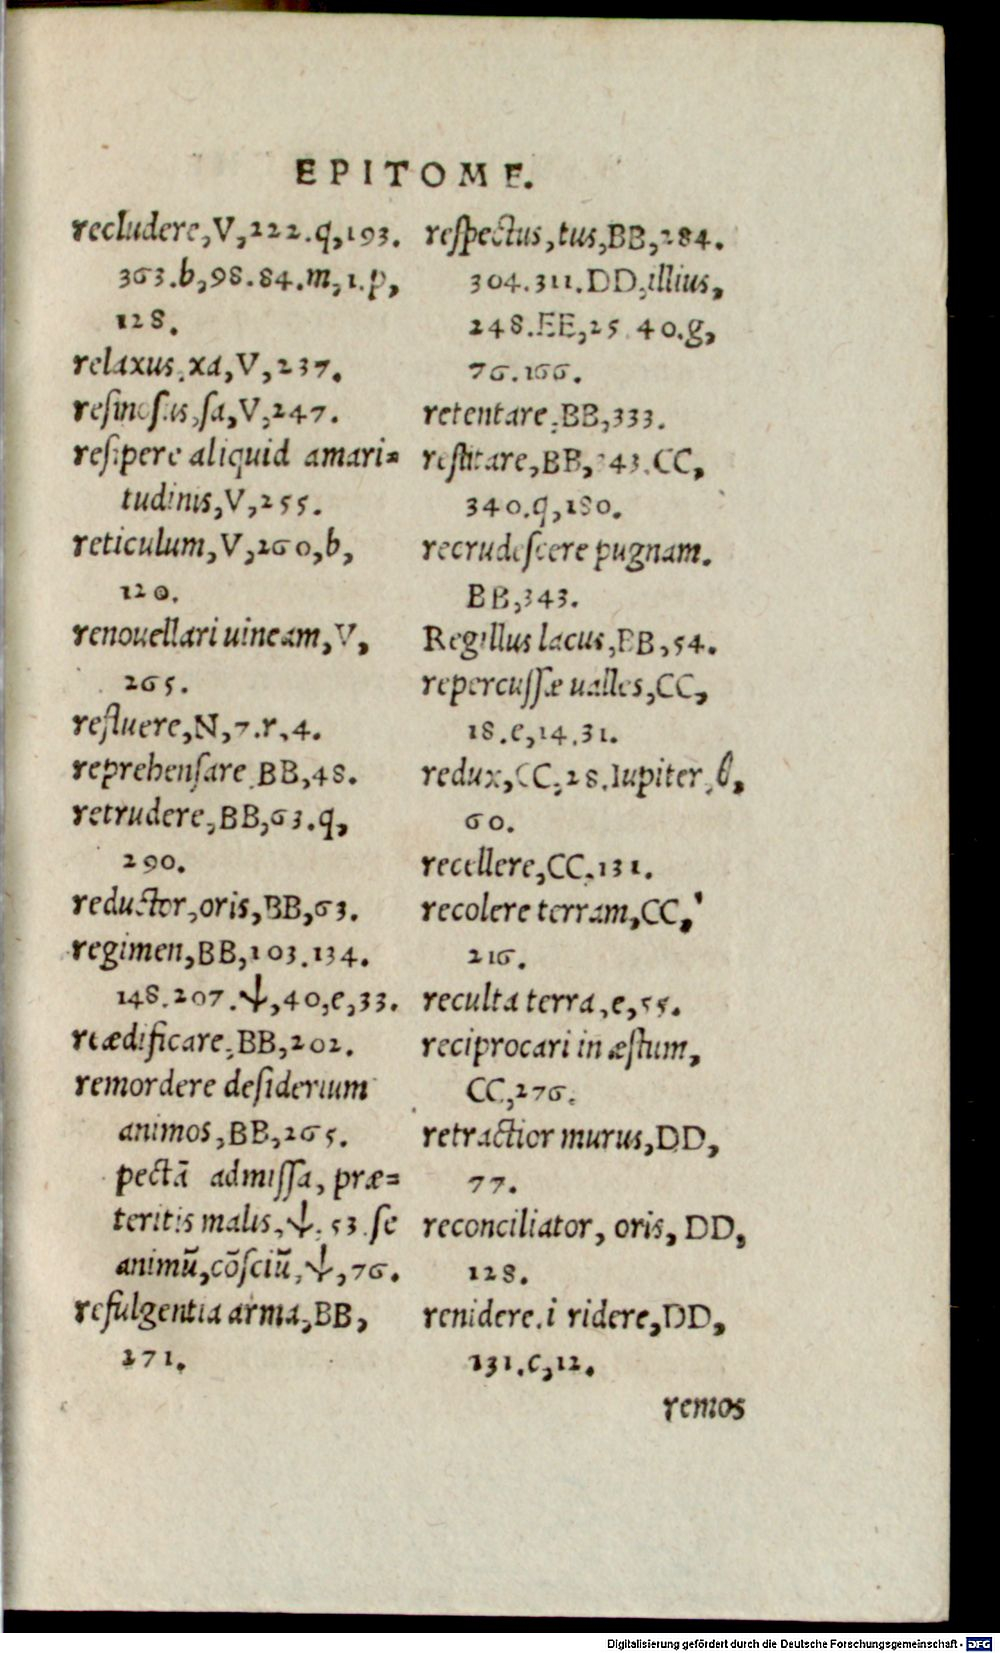 EPITOME.
recludere,V,222.q,193.
363.b,98.84.m,1.p,
128.
relaxus,xa,V,237.
resinosus,sa,V,247.
resipere aliquid amari=
tudinis,V,255.
reticulum,V,260,b,
120.
renouellari uineam,V,
265.
refluere,N,7.r,4.
reprehensare BB,48.
retrudere,BB,63.q,
290.
reductor,oris,BB,63.
regimen,BB,103.134.
148.207.ↆ,40,e,33.
reædificare,BB,202.
remordere desiderium
animos,BB,265.
pectā admissa, præ=
teritis malis,ↆ.53.se
animū,cōsciū,ↆ,76.
refulgentia arma,BB,
271.
respectus,tus,BB,284.
304.311.DD,illius,
248.EE,25.40.g,
76.166.
retentare,BB,333.
restitare,BB,343.CC,
340.q,180.
recrudescere pugnam.
BB,343.
Regillus lacus,BB,54.
repercussæ ualles,CC,
18.e,14.31.
redux,CC,28.Iupiter,b,
60.
recellere,CC.131.
recolere terram,CC,
216.
reculta terra,e,55.
reciprocari in æstum,
CC,276.
retractior murus,DD,
77.
reconciliator, oris, DD,
128.
renidere.i ridere,DD,
131.c,12.
remos
Digitalisierung gefördert durch die Deutsche Forschungsgemeinschaft - DFG